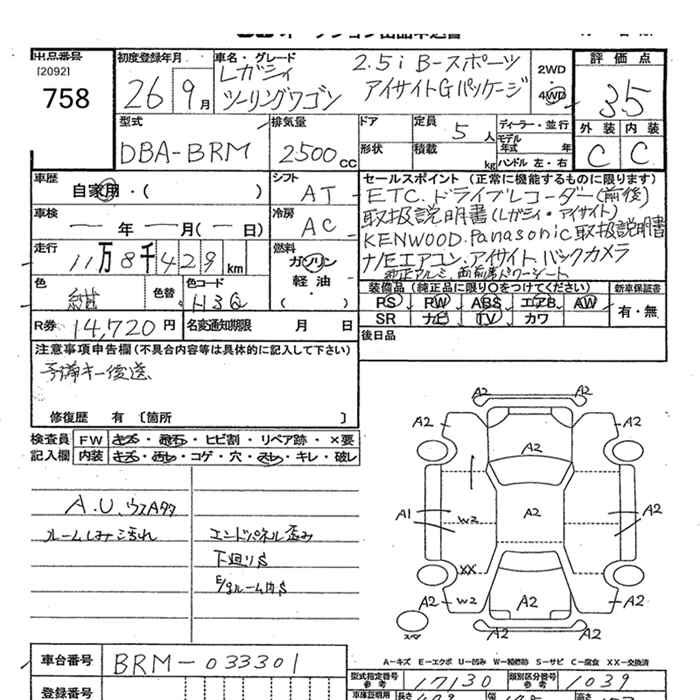 出品番号
[2092]
758
初度登録年月
26 9月
車名・グレード
レガシィ 2.5i B-スポーツ
ツーリングワゴン アイサイトGパッケージ
2WD
4WD
評価点
3.5
外装 内装
C C
型式
DBA-BRM
排気量
2500cc
ドア
形状
定員 5人
積載 kg
ディーラー・並行
モデル年式 年
ハンドル 左・右
車歴
自家用・( )
シフト
AT
車検
年 月(ー日)
冷房
AC
走行
11万8千429km
燃料
ガソリン
軽油・
( )
色
紺
色替
色コード
H3Q
R券 14,720円
名変通知期限 月 日
セールスポイント (正常に機能するものに限ります)
ETC.ドライブレコーダー(前後)
取扱説明書(レガシィ・アイサイト)
KENWOOD.Panasonic取扱説明書
ナビエアコン.アイサイト バックカメラ
純正アルミ、両前席パワーシート
装備品 (純正品に限り○をつけてください)
新車保証書
PS PW ABS エアB. AW
SR ナビ TV カワ
有・無
後日品
注意事項申告欄(不具合内容等は具体的に記入して下さい)
予備キー後送
修復歴 有 〔箇所 〕
検査員 FW キズ・飛石・ヒビ割・リペア跡・×要
記入欄 内装 キズ・汚レ・コゲ・穴・スレ・キレ・破レ
A.U.ウスAタタ
ルームしみ汚れ
エンドパネル歪み
下廻りS
E/gルーム内S
A2 A2
A2 A2
A2
A1 W2 A2 A2
XX
A2 W2 A2 A2
A2 A2
スペア
A-キズ E-エクボ U-凹み W-補修跡 S-サビ C-腐食 XX-交換済
車台番号 BRM-033301
型式指定番号 参考 17130
類別区分番号 参考 1039
登録番号
車庫証明用
長さ
幅